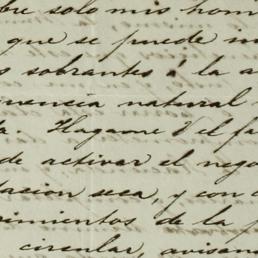 bre solo mis hom
que se puede in
s sobrantes á la a
uencia natural
a. Hagame V el fa
de activar el nego
tacion seca, y con
imientos de la p
circular, avisan